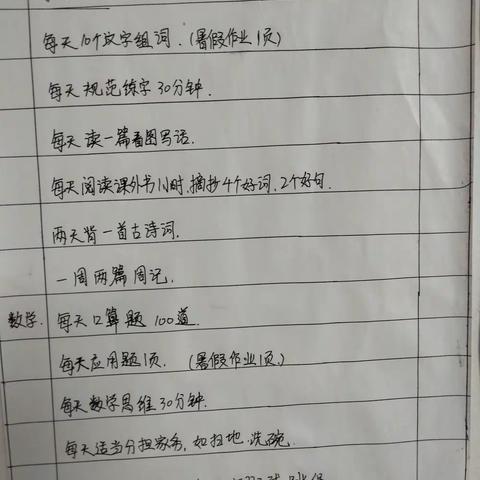 每天10个汉字组词.(暑假作业1页)
每天规范练字30分钟.
每天读一篇看图写话.
每天阅读课外书1小时,摘抄4个好词,2个好句.
两天背一首古诗词.
一周两篇周记.
数学. 每天口算题100道.
每天应用题1页.(暑假作业1页.)
每天数学思维30分钟.
每天适当分担家务,如扫地.洗碗.